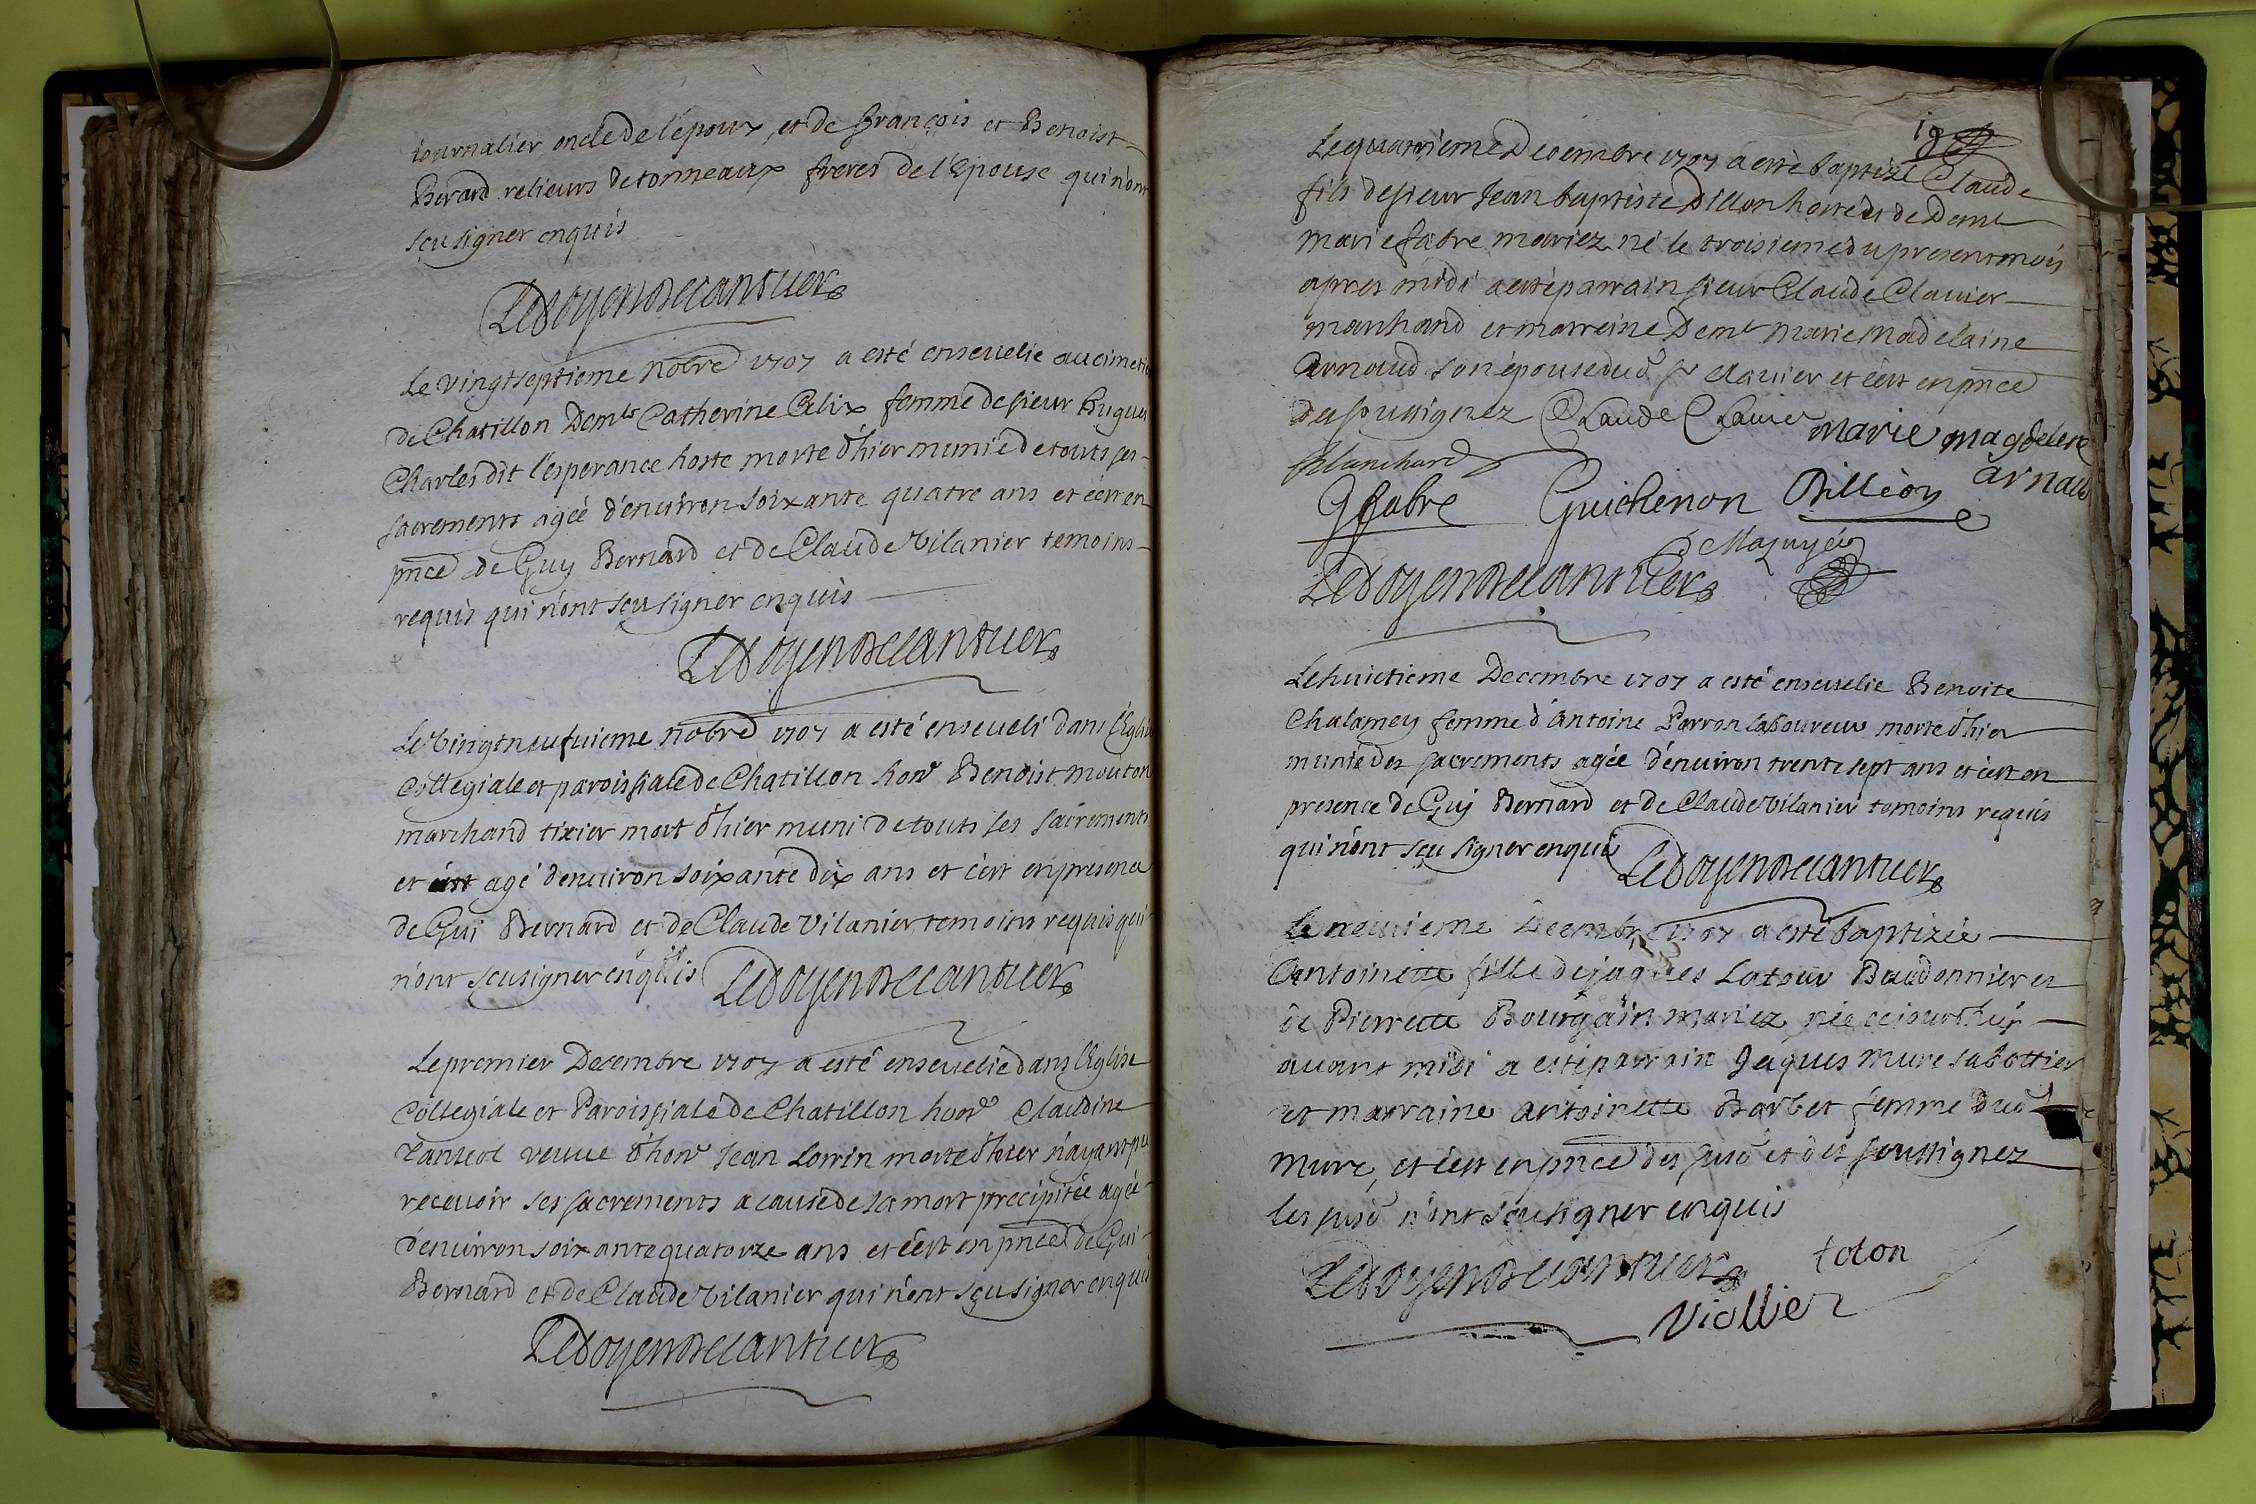 journalier oncle de l'époux, et de François et Benoist
Berard relieurs de tonneaux freres de l'Epouse qui n'ont
sçu signer enquis
Ledoyen Decantuer
Le vingt septieme nobre 1707 a esté enseuelie au cimetie
de Chatillon Demle Catherine Celix femme de sieur Hugues
Charles dit l'esperance hoste morte d'hier munie de touts ses
sacrements agée d'enuiron soixante quatre ans et c'est en
pnce de Guy Bernard et de Claude Vilanier temoins
requis qui n'ont sçu signer enquis
Ledoyen Decantuer
Le Vingt neufuieme nobre 1707 a esté enseueli dans l'Eglise
Collegiale et paroissiale de Chatillon honr Benoist mouton
marchand tixier mort d'hier muni de touts ses sacrements
et agé d'enuiron soixante dix ans et c'est en presence
de Gui Bernard et de Claude Vilanier temoins requis qui
n'ont sçu signer enquis Ledoyen Decantuer
Le premier Decembre 1707 a esté enseuelie dans l'Eglise
Collegiale et Paroissiale de Chatillon honr Claudine
veuue d'honr Jean Lorin morte d'hier n'ayant pu
receuoir ses sacrements a cause de sa mort precipitée agée
d'enuiron soixante quatorze ans et c'est en pnce de Gui
Bernard et de Claude Vilanier qui n'ont sçu signer enquis
Ledoyen Decantuer
Le quatrieme Decembre 1707 a esté baptizé Claude
fils de sieur Jean baptiste Dillon hoste et de Deme
marie fabre mariez né le troisieme du present mois
apres midi a esté parrain sieur Claude Clauier
marchand et marreine Deme Marie Madelaine
Arnaud son épouse dud sr Clauier et c'est en pnce
des soussignez Claude Clauier Marie magdelene
arnaud
planchard
fabre Guichenon Dilléon
Ledoyen Decantuer
Le huictieme Decembre 1707 a esté enseuelie Benoite
Chalamey femme d'Antoine Parron laboureur morte d'hier
munie des sacrements agée d'enuiron trente sept ans et c'est en
presence de Guy Bernard et de Claude Vilanier temoins requis
qui n'ont sçu signer enquis Ledoyen Decantuer
Le neuuieme Decembre 1707 a esté baptizée
Antoinette fille de jaques Latour Baudonnier et
de Pierrette Bourgain mariez née ce jourd'huy
auant midi a esté parrain Jaques Mure sabottier
et marraine antoinette Barbet femme dud
Mure, et c'est en pnce des susd et des soussignez
les susd n'ont sçu signer enquis
Ledoyen Decantuer tolon
Viollier